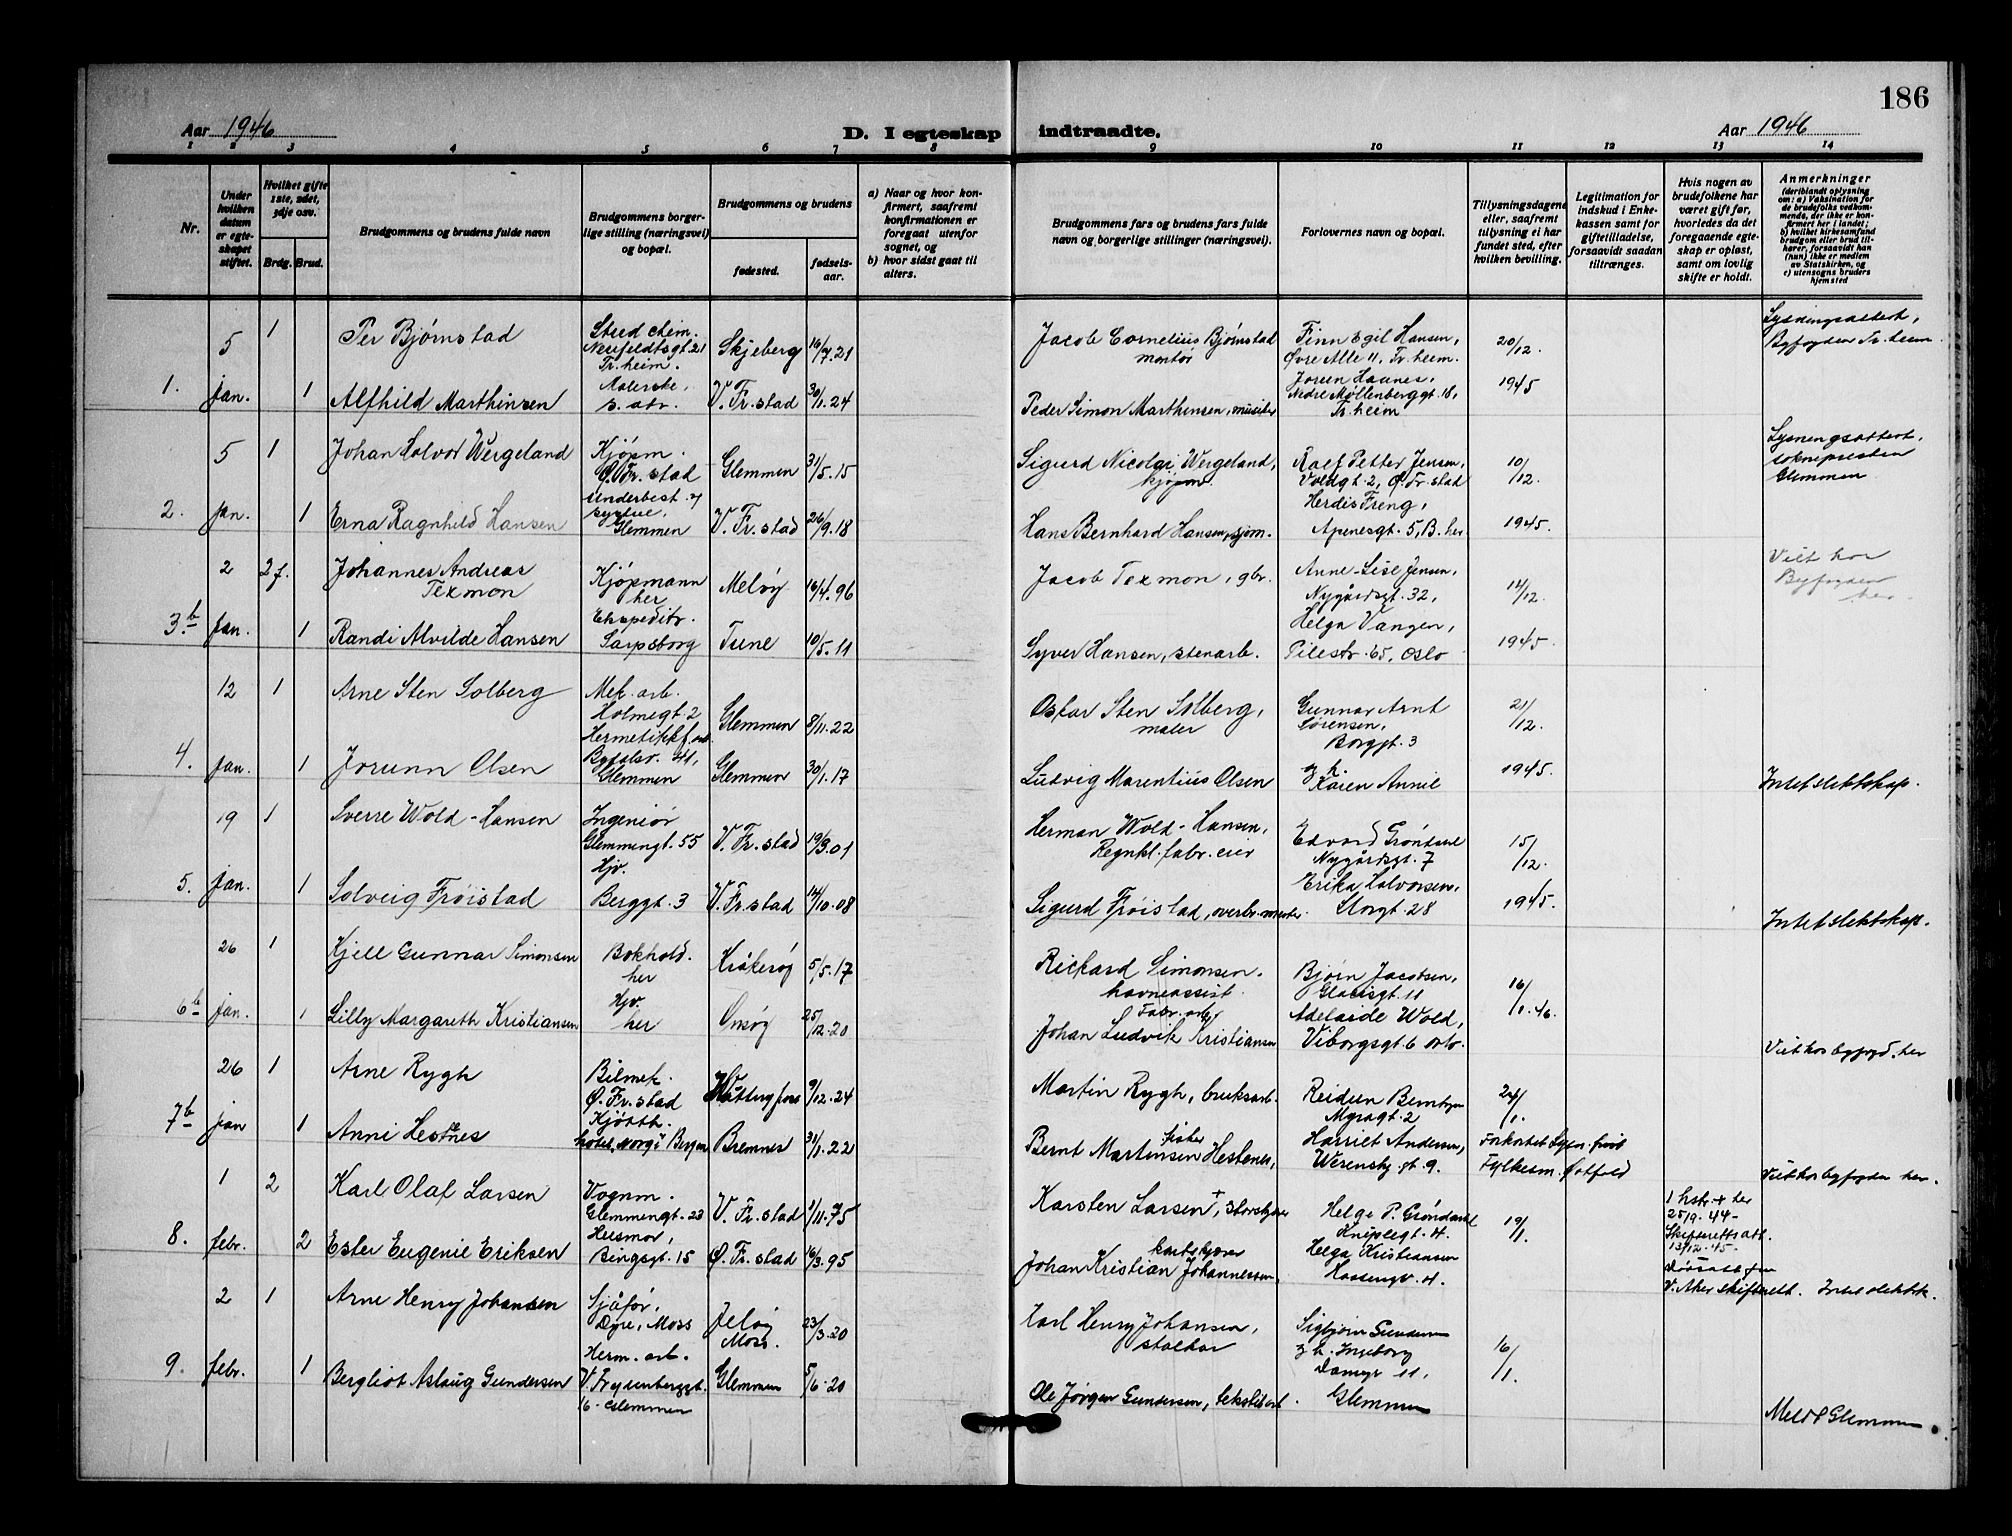 186
Aar 1946
D. I egteskap
indtraadte.
Aar 1946
1 2 3 4 5 6 7 8 9 10 11 12 13 14
Nr.
Under hvilken datum er egteskapet stiftet.
Hvilket gifte 1ste, 2det, 3dje osv.
Brdg. Brud.
Brudgommens og brudens fulde navn
Brudgommens borgerlige stilling (næringsvei) og bopæl.
Brudgommens og brudens
fødested.
fødselsaar.
a) Naar og hvor konfirmert, saafremt konfirmationen er foregaat utenfor sognet, og
b) hvor sidst gaat til alters.
Brudgommens fars og brudens fars fulde navn og borgerlige stillinger (næringsvei).
Forlovernes navn og bopæl.
Tillysningsdagene eller, saafremt tillysning ei har fundet sted, efter hvilken bevilling.
Legitimation for indskud i Enkekassen samt for giftetilladelse, forsaavidt saadan tiltrænges.
Hvis nogen av brudefolkene har været gift før, hvorledes da det foregaaende egteskap er opløst, samt om lovlig skifte er holdt.
Anmerkninger
(deriblandt oplysning om: a) Vaksination for de brudefolks vedkommende, der ikke er konfirmert her i landet; b) hvilket kirkesamfund brudgom eller brud tilhører, forsaavidt han (hun) ikke er medlem av Statskirken, og c) utensogns bruders hjemsted
1. 5 jan. 1
Per Bjørnstad
Stud. chem. Neufeldtsgt. 21 Tr.heim.
Skjeberg 16/7.21
Jacob Cornelius Bjørnstad montør
Finn Egil Hansen, Øvre Alle 11, Tr.heim.
20/12. 1945
Lysningsattest, Byfogden Tr.heim
1 Alfhild Marthinsen
V. Fr.stad 30/1.24
Peder Simon Marthinsen, musiker
Nedre Møllenberggt. 18, Tr.heim
2. 5 jan. 1
Johan Halvor Wergeland
Kjøpm. Ø. Fr.stad
Glemmen 31/5.15
Sigurd Nicolai Wergeland, kjøpm.
Ralf Petter Jensen, Voldgt. 2, Ø. Fr.stad
10/12. 1945.
Lysningsattest, sokнepresten Glemmen
1 Erna Ragnhild Hansen
Underbest. systue, Glemmen
V. Fr.stad 26/9.18
Hans Bernhard Hansen, sjøm.
Herdis Freng, Apenesgt. 5, B. her
3.b 2 jan. 2 f.
Johannes Andreas Texmon
Kjøpmann her
Meløy 16/4.96
Jacob Texmon, gbr.
Anne-Lise Jensen, Nygårdsgt. 32,
14/12. 1945.
Viet hos Byfogden her
1 Randi Alvilde Hansen
Ekspeditr. Sarpsborg
Tune 10/5.11
Syver Hansen, stenarb.
Helga Vangen, Pilestr. 65, Oslo
4. 12 jan. 1
Arne Sten Solberg
Mek. arb. Holmegt. 2
Glemmen 8/11.22
Oskar Sten Solberg, maler
Gunnar Arnt Sørensen, Borggt. 3
21/12. 1945.
1 Jorunn Olsen
Hermetikkf. arb. 41, Glemmen
Glemmen 30/1.17
Ludvig Marentius Olsen
g.h. Karen Annie
Intet slektskap.
5. 19 jan. 1
Sverre Wold-Hansen
Ingeniør Glemmengt. 55
V. Fr.stad 19/9.01
Herman Wold-Hansen, fabr. eier
Edvard Grøndahl Nygårdsgt. 7
15/12. 1945.
1 Solveig Frøistad
Hjv. Berggt. 3
V. Fr.stad 14/10.08
Sigurd Frøistad,
Erika Halvorsen, Storgt. 28
Intet slektskap.
6b 26 jan. 1
Kjell Gunnar Simonsen
Bokhold. her
Kråkerøy 5/5.17
Rickard Simonsen. havneassist.
Bjørn Jacobsen, Glacisgt. 11
16/1.46.
1 Lilly Margareth Kristiansen
Hjv. her
Onsøy 25/12.20
Johan Ludvik Kristiansen Fabr. arb.
Adelaide Wold, Viborgsgt. 6 Oslo.
Viet hos byfogd. her
7b 26 jan 1
Arne Rygh
Bilmek. Ø. Fr.stad
9/12.24
Martin Rygh, bruksarb.
Reidun Myragt. 2
24/1.
1 Anni Hestnes
hotel Norge Bergen
Bremnes 31/1.22
Bernt Martinsen Hestnes, fisker
Harriet Andersen, gt. 9.
Forkortet lysn. frist Fylkesm. Østfold
Viet hos byfogden her.
8. 1 febr. 2
Karl Olaf Larsen
Vognm. Glemmengt. 23
V. Fr.stad 1/11.75
Karsten Larsen +,
Helge P. Grøndahl Kniplegt. 4.
19/1.
1 hstr. + her 25/9.44- Skifteretts att. 13/12.45-
2 Ester Eugenie Eriksen
Husmor, Bingsgt. 15
Ø. Fr.stad 16/3.95
Johan Kristian Johannessen,
Helga Kristiansen 4.
V. Aker skifterett.
Intet slektsk.
9. 2 febr. 1
Arne Henry Johansen
Sjåfør, Dyre, Moss
Jeløy Moss. 23/3.20
Karl Henry Johansen,
Sigbjørn Gundersen g.h. Ingeborg Damyr 11, Glemmen
16/1.
1 Bergliot Aslaug Gundersen
Herm. arb. 16 - Glemmen
Glemmen 5/6.20
Ole Jørgen Gundersen, tekstilarb.
Meldt Glemmen